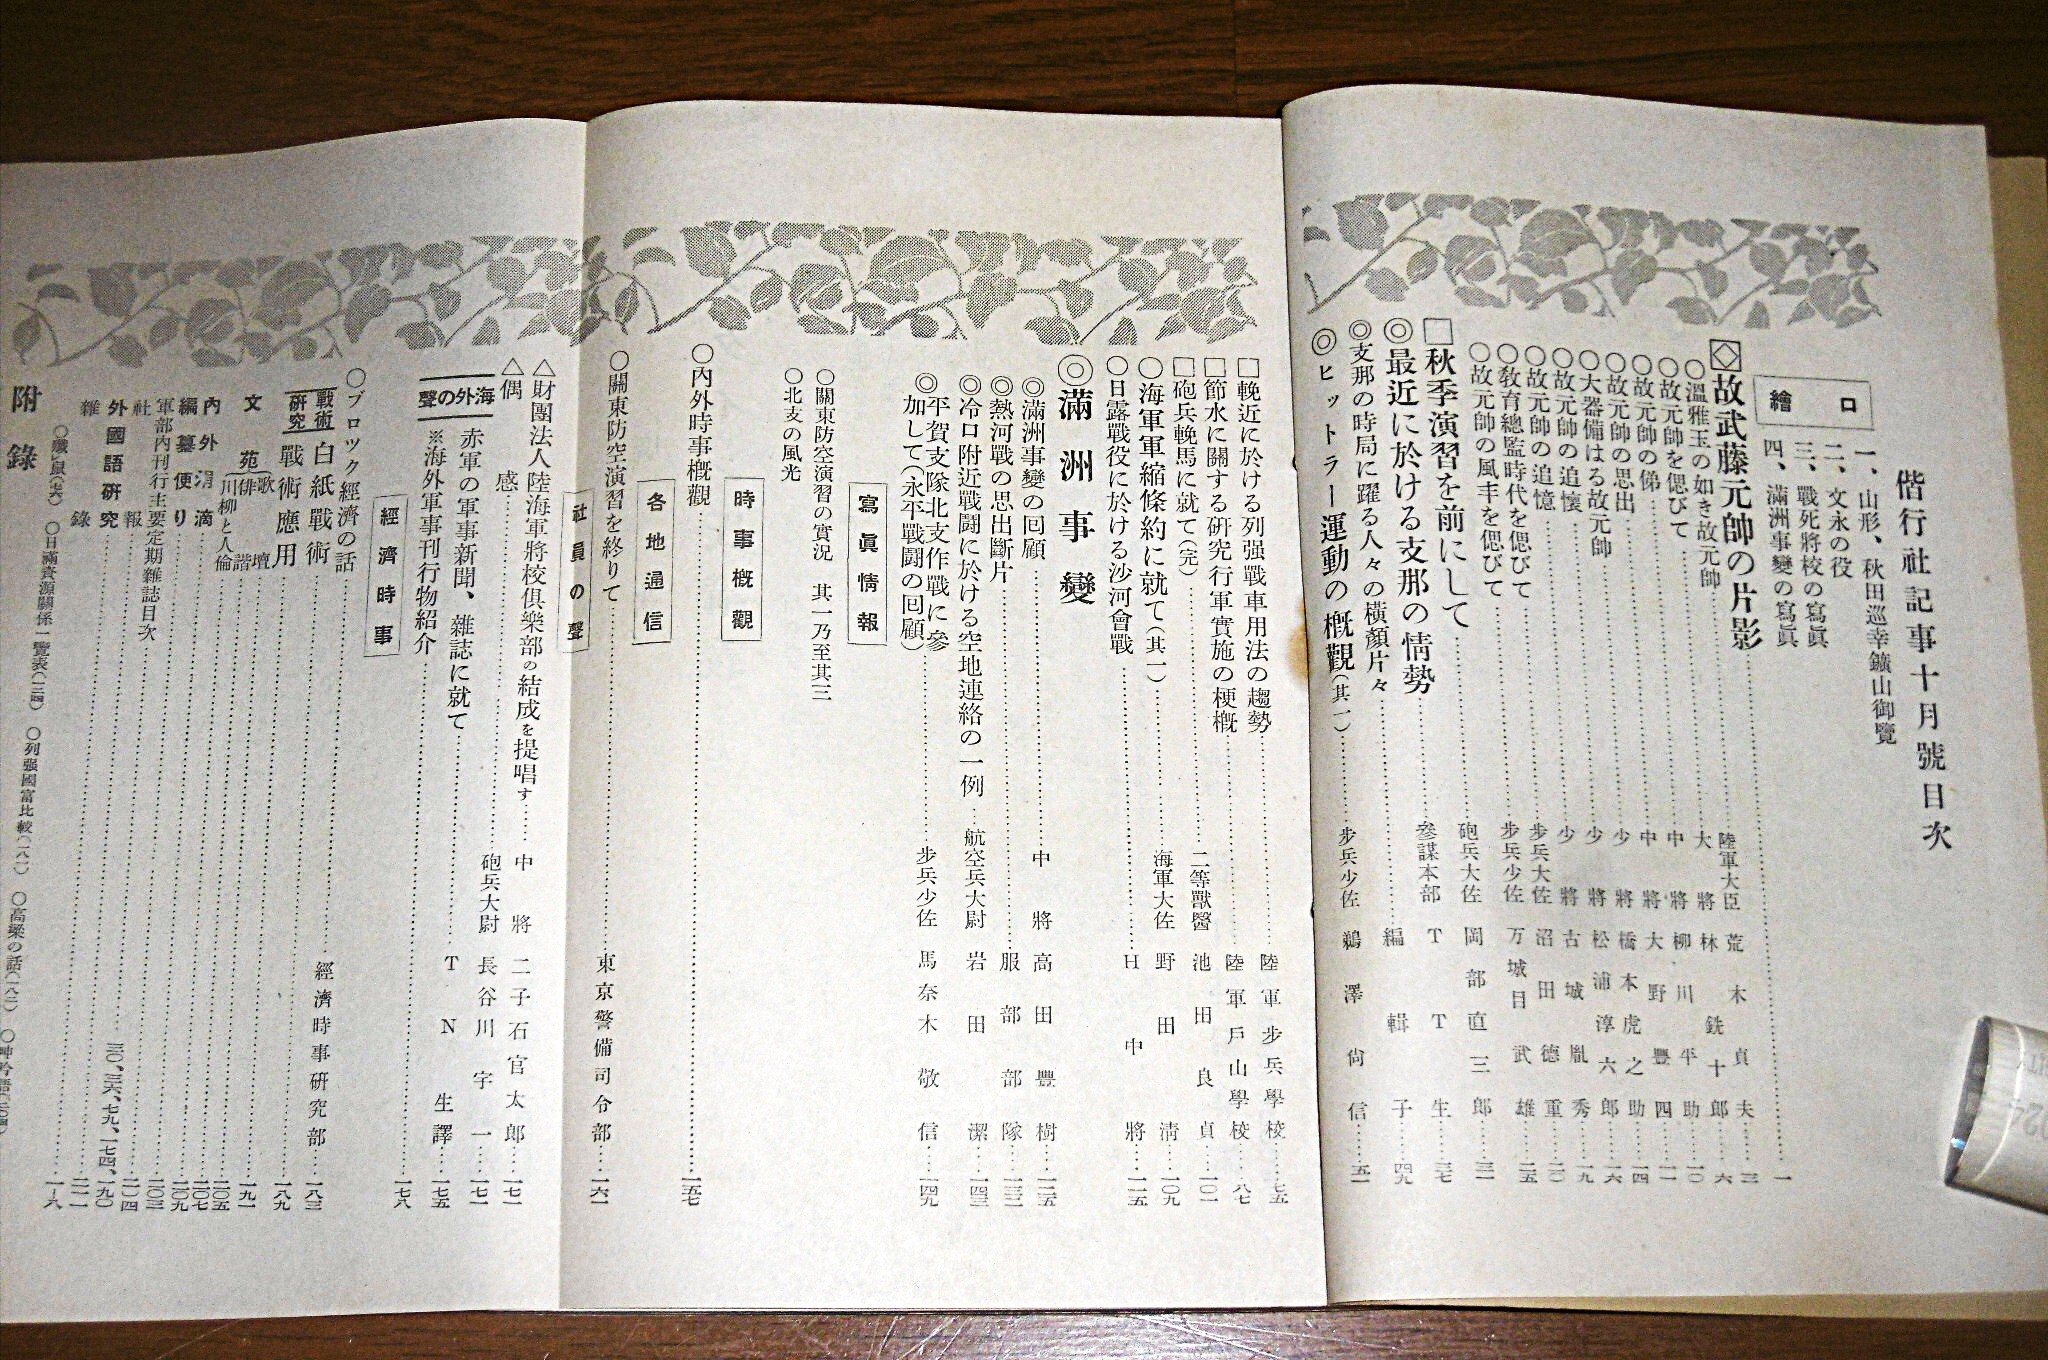 偕行社記事十月號目次
口繪
一、山形、秋田巡幸鑛山御覽
二、文永の役
三、戰死將校の寫眞
四、滿洲事變の寫眞……一
◇故武藤元帥の片影……陸軍大臣 荒木貞夫……三
○溫雅玉の如き故元帥……大將 林銑十郎……六
○故元帥を偲びて……中將 柳川平助……一〇
○故元帥の俤……中將 大野豐四……一一
○故元帥の思出……少將 橋本虎之助……一四
○大器備はる故元帥……少將 松浦淳六郎……一六
○故元帥の追懷……少將 古城胤秀……一九
○故元帥の追憶……步兵大佐 沼田德重……二〇
○敎育總監時代を偲びて……步兵少佐 万城目武雄……二五
○故元帥の風丰を偲びて……砲兵大佐 岡部直三郎……三一
□秋季演習を前にして……參謀本部 TT生……三七
◎最近に於ける支那の情勢
◎支那の時局に躍る人々の橫顏片々……編輯子……四九
◎ヒットラー運動の槪觀(其一)……步兵少佐 鵜澤尙信……五一
□輓近に於ける列强戰車用法の趨勢……陸軍步兵學校……七五
□節水に關する硏究行軍實施の梗槪……陸軍戶山學校……八七
□砲兵輓馬に就て(完)……二等獸醫 池田良貞……一〇一
○海軍軍縮條約に就て(其一)……海軍大佐 野田淸……一〇九
○日露戰役に於ける沙河會戰……H中將……一一五
◎滿洲事變
◎滿洲事變の回顧……中將 高田豐樹……一二五
◎熱河戰の思出斷片……服部部隊……一三一
◎冷口附近戰鬪に於ける空地連絡の一例……航空兵大尉 岩田潔……一四三
◎平賀支隊北支作戰に參加して(永平戰鬪の回顧)……步兵少佐 馬奈木敬信……一四九
寫眞情報
○關東防空演習の實況 其一乃至其三
○北支の風光
時事槪觀
○內外時事槪觀……一五七
各地通信
○關東防空演習を終りて……東京警備司令部……一六一
社員の聲
△財團法人陸海軍將校俱樂部の結成を提唱す……中將 二子石官太郎……一七一
△偶感……砲兵大尉 長谷川宇一……一七一
海外の聲
赤軍の軍事新聞、雜誌に就て……TN生譯……一七五
※海外軍事刊行物紹介……一七八
經濟時事
○ブロック經濟の話……經濟時事硏究部……一八三
戰術硏究
白紙戰術
戰術應用……一八九
文苑
歌壇……一九一
俳諧
川柳と人倫……二〇五
內外涓滴……二〇七
編纂便り……二〇九
軍部內刊行主要定期雜誌目次……二〇三
社報……二一四
外國語硏究……三〇、三六、七九、一七四、一九〇
雜錄……二一一
附錄
○日滿資源關係一覽表(一三四)
○列强國富比較(一八一)
○高粱の話(一八二)
……一-六